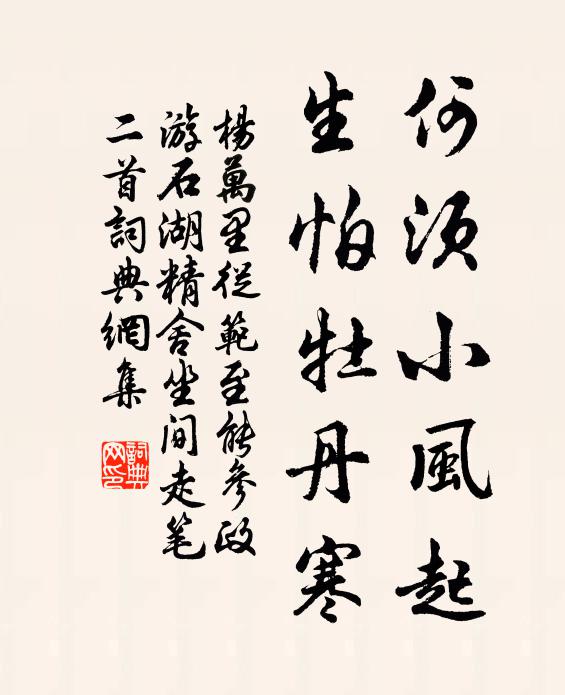 何须小風起
生怕牡丹寒
楊萬里從範至能參政
游石湖精舍坐间走笔
二首詞典網集
詞典
网印